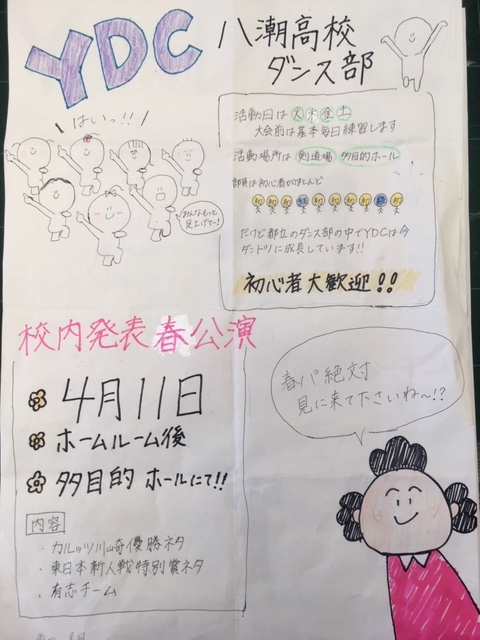 YDC 八潮高校
ダンス部
はいっ!!
みんなもっと
足上げて〜!
活動日は 火木金土
大会前は基本毎日練習します
活動場所は 剣道場 多目的ホール
部員は初心者がほとんど
初 初 初 経 初 初 初 初 経 初
だけど都立のダンス部の中でYDCは今
ダントツに成長しています!!
初心者大歓迎!!
校内発表春公演
4月11日
ホームルーム後
多目的 ホールにて!!
内容
・カルッツ川崎優勝ネタ
・東日本新人戦特別賞ネタ
・有志チーム
春パ絶対
見に来て下さいね〜!?